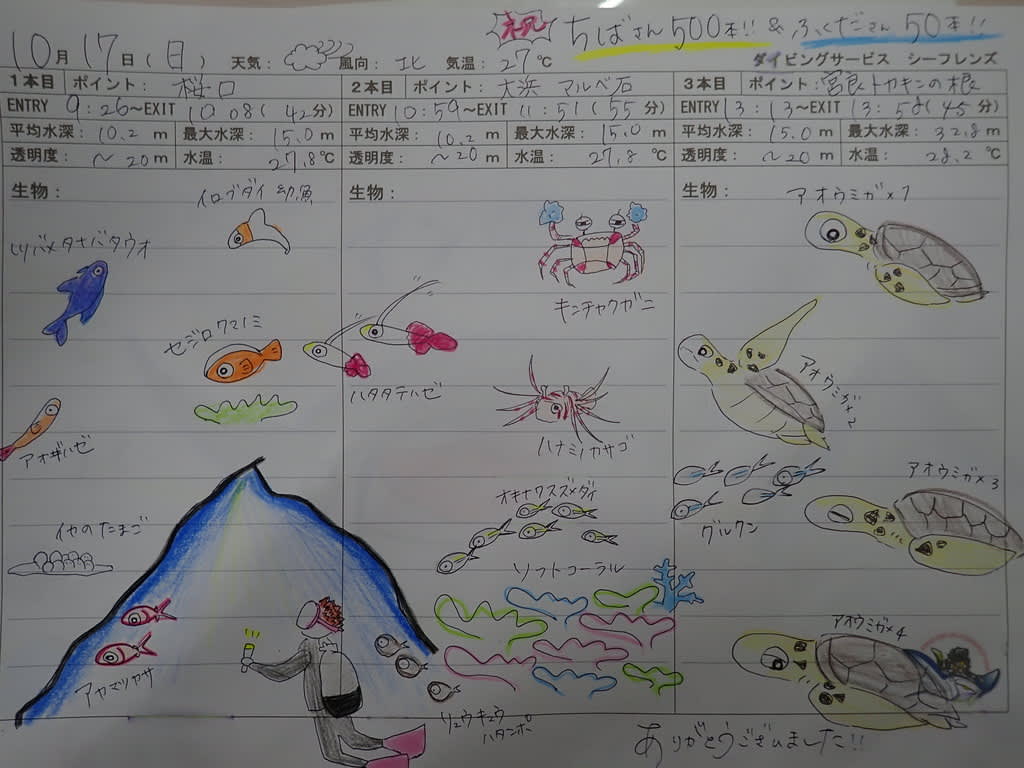 祝 ちばさん500本!! & ふくださん50本!!
10月17日(日) 天気: 風向: 北 気温: 27℃ ダイビングサービス シーフレンズ
1本目 ポイント: 桜口
ENTRY 9:26~EXIT 10:08(42分)
平均水深: 10.2m 最大水深: 15.0m
透明度: ~20m 水温: 27.8℃
生物:
イロブダイ幼魚
ツバメタナバタウオ
セジロクマノミ
アオギハゼ
イヤのたまご
アヤマツカサ
リュウキュウハタンポ
2本目 ポイント: 大浜 マルベ石
ENTRY 10:59~EXIT 11:51(55分)
平均水深: 10.2m 最大水深: 15.0m
透明度: ~20m 水温: 27.8℃
生物:
キンチャクガニ
ハタタテハゼ
ハナミノカサゴ
オキナワスズメダイ
ソフトコーラル
3本目 ポイント: 宮良トカキンの根
ENTRY 13:13~EXIT 13:58(45分)
平均水深: 15.0m 最大水深: 32.8m
透明度: ~20m 水温: 28.2℃
生物:
アオウミガメ1
アオウミガメ2
アオウミガメ3
グルクン
アオウミガメ4
ありがとうございました!!